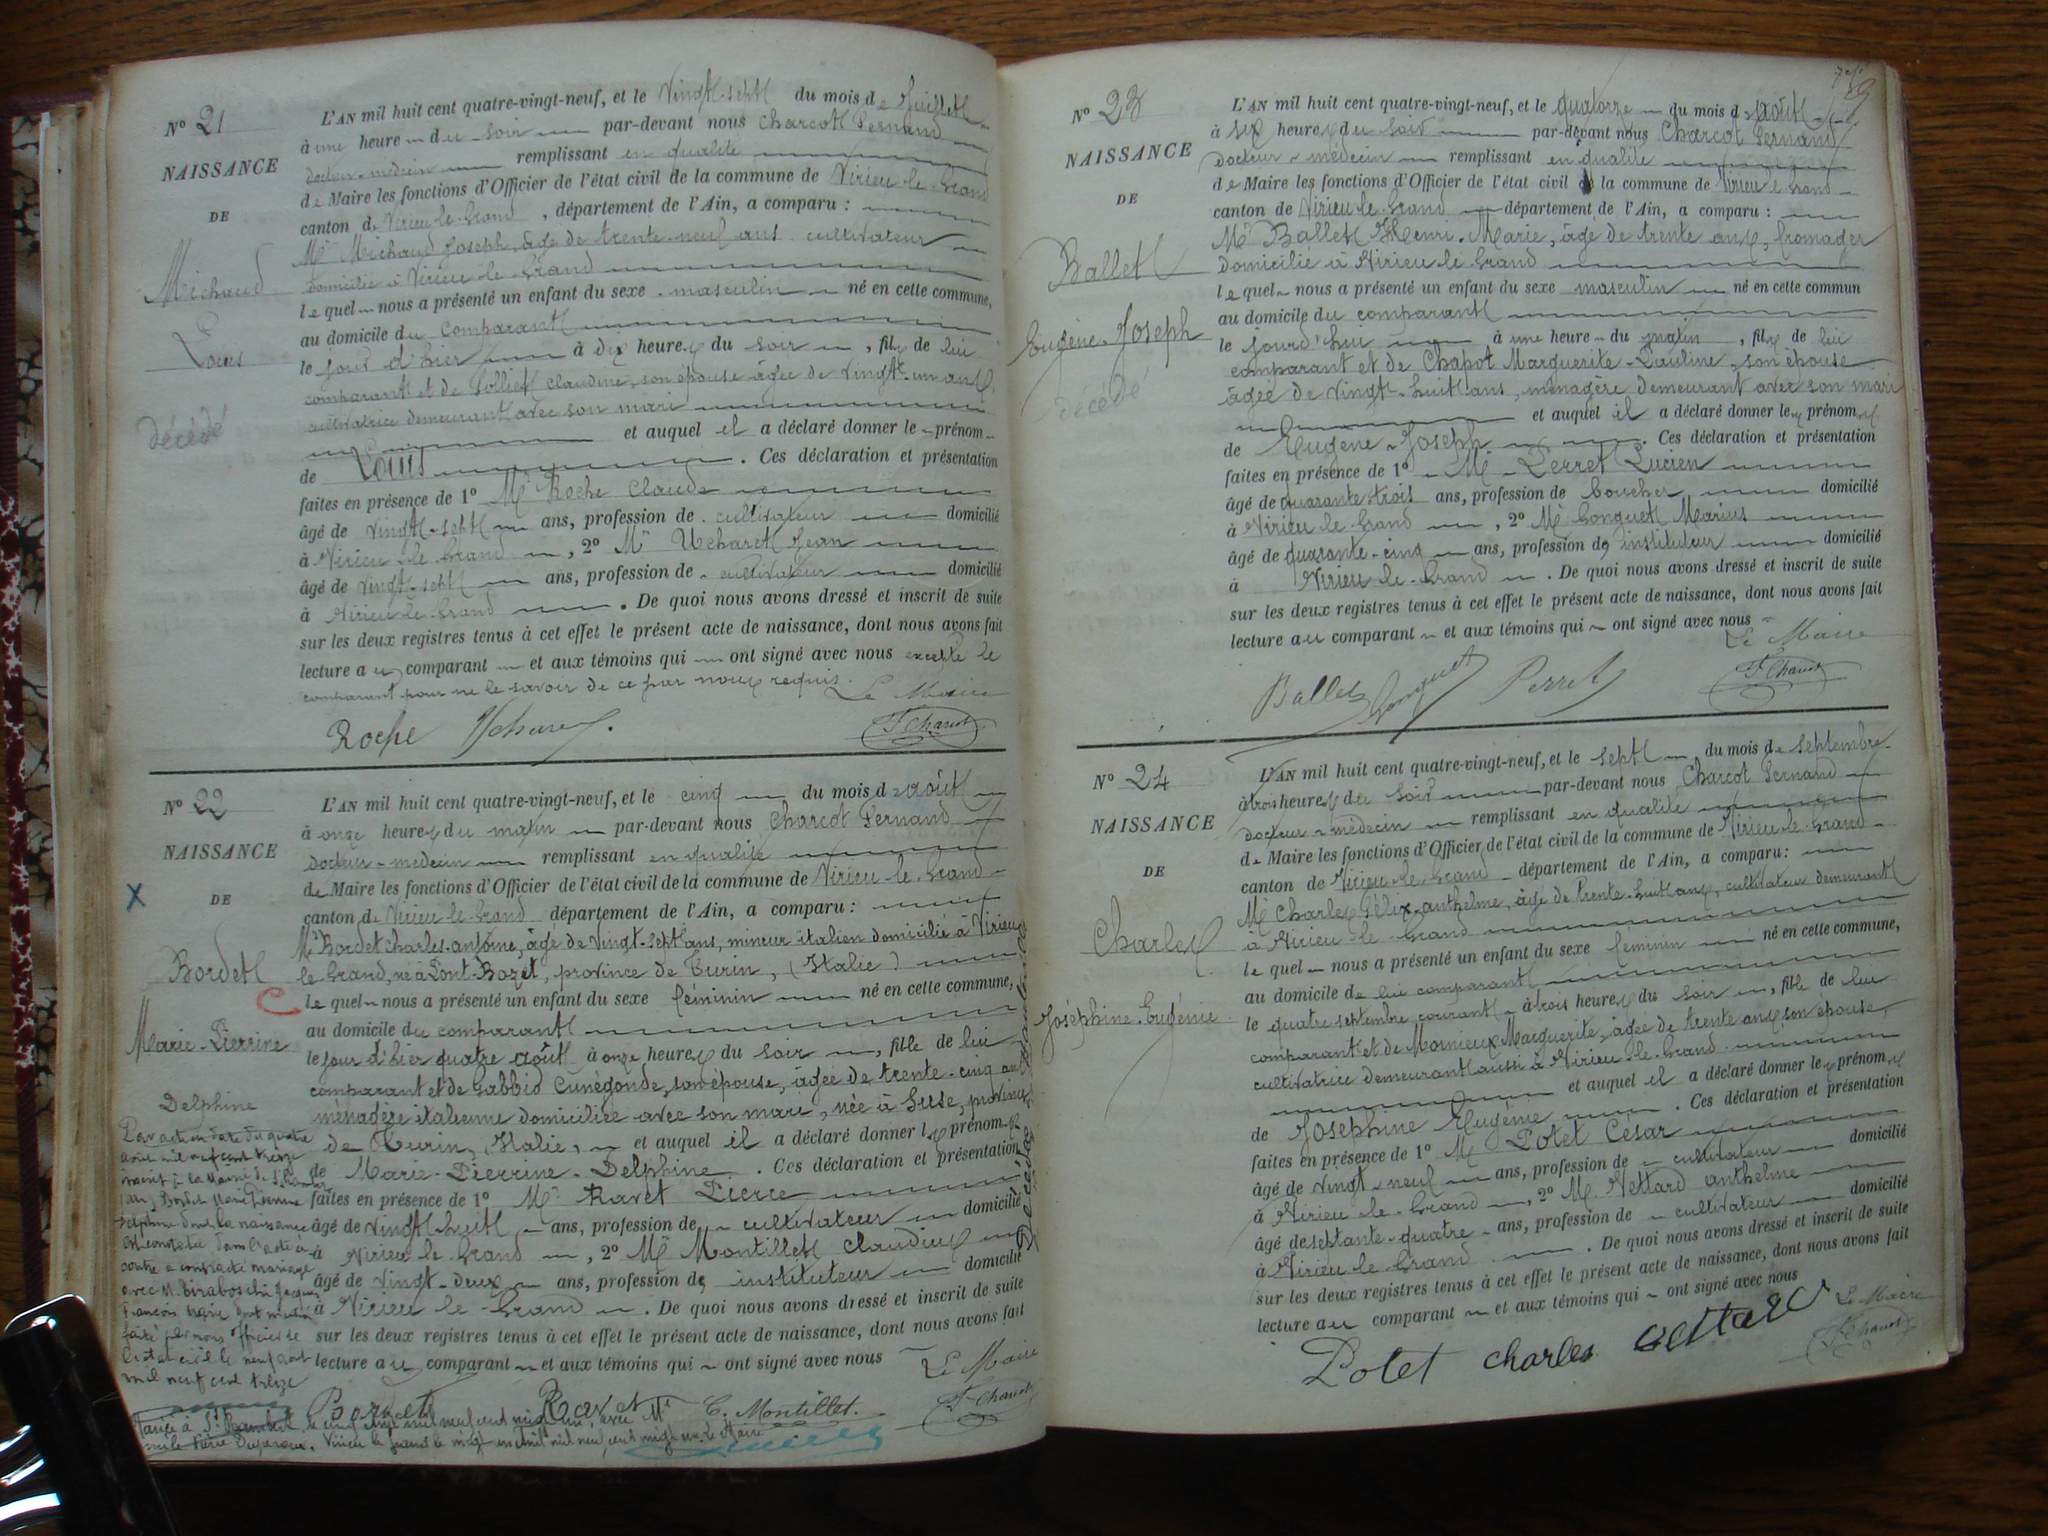 N° 21
NAISSANCE
DE
Michaud
Louis
décédé
L'AN mil huit cent quatre-vingt-neuf, et le Vingt-sept du mois de Juillet
à une heure du soir par-devant nous Charcot Fernand
docteur-médecin remplissant en qualité
de Maire les fonctions d'Officier de l'état civil de la commune de Virieu-le-Grand
canton de Virieu-le-Grand, département de l'Ain, a comparu :
Mr Michaud Joseph, âgé de trente-neuf ans cultivateur
domicilié à Virieu-le-Grand
lequel nous a présenté un enfant du sexe masculin né en cette commune,
au domicile du comparant
le jour d'hier à dix heures du soir, fils de lui
comparant et de Claudine, son épouse âgée de vingt-un ans,
cultivatrice demeurant avec son mari
et auquel il a déclaré donner le prénom
de Louis. Ces déclaration et présentation
faites en présence de 1° Mr Roche Claude
âgé de vingt-sept ans, profession de cultivateur domicilié
à Virieu-le-Grand, 2° Mr Ucharet Jean
âgé de vingt-sept ans, profession de cultivateur domicilié
à Virieu-le-Grand. De quoi nous avons dressé et inscrit de suite
sur les deux registres tenus à cet effet le présent acte de naissance, dont nous avons fait
lecture au comparant et aux témoins qui ont signé avec nous excepté le
comparant pour ne le savoir de ce par nous requis.
Le Maire
Roche Ucharet F Charcot
N° 22
NAISSANCE
DE
Bordet
Marie-Pierrine
Delphine
L'AN mil huit cent quatre-vingt-neuf, et le cinq du mois d'août
à onze heures du matin par-devant nous Charcot Fernand
docteur-médecin remplissant en qualité
de Maire les fonctions d'Officier de l'état civil de la commune de Virieu-le-Grand
canton de Virieu-le-Grand département de l'Ain, a comparu :
Mr Bordet Charles-antoine, âgé de vingt-sept ans, mineur italien domicilié à Virieu
le Grand, né à Pont-Bozet, province de Turin, (Italie)
lequel nous a présenté un enfant du sexe féminin né en cette commune,
au domicile du comparant
le jour d'hier quatre août à onze heures du soir, fille de lui
comparant et de Gabbio Cunégonde, son épouse, âgée de trente-cinq ans
ménagère italienne domiciliée avec son mari, née à Suse, province
de Turin, Italie, et auquel il a déclaré donner les prénoms
de Marie-Pierrine-Delphine. Ces déclaration et présentation
faites en présence de 1° Mr Ravet Pierre
âgé de vingt-huit ans, profession de cultivateur domicilié
à Virieu le Grand, 2° Mr Montillet Claudius
âgé de vingt-deux ans, profession de instituteur domicilié
à Virieu le Grand. De quoi nous avons dressé et inscrit de suite
sur les deux registres tenus à cet effet le présent acte de naissance, dont nous avons fait
lecture au comparant et aux témoins qui ont signé avec nous
Le Maire
Bordet Ravet C. Montillet. F Charcot
Par acte en date du quatre
août mil neuf cent treize
inscrit à la Mairie de
Bordet Marie Pierrine
Delphine dont la naissance
est constatée dans l'acte ci-
contre a contracté mariage
avec M. Jacques
François
faite par nous officier de
l'état civil le neuf août
mil neuf cent treize
N° 23
NAISSANCE
DE
Ballet
Eugène-Joseph
décédé
L'AN mil huit cent quatre-vingt-neuf, et le quatorze du mois d'août
à six heures du soir par-devant nous Charcot Fernand
docteur-médecin remplissant en qualité
de Maire les fonctions d'Officier de l'état civil de la commune de Virieu le Grand
canton de Virieu-le-Grand département de l'Ain, a comparu :
Mr Ballet Henri-Marie, âgé de trente ans, fromager
domicilié à Virieu le Grand
lequel nous a présenté un enfant du sexe masculin né en cette commun
au domicile du comparant
le jourd'hui à une heure du matin, fils de lui
comparant et de Chapot Marguerite-Pauline, son épouse
âgée de vingt-huit ans, ménagère demeurant avec son mari
et auquel il a déclaré donner les prénoms
de Eugène-Joseph. Ces déclaration et présentation
faites en présence de 1° Mr Perret Lucien
âgé de quarante trois ans, profession de boucher domicilié
à Virieu le Grand, 2° Mr Gonguet Marius
âgé de quarante-cinq ans, profession de instituteur domicilié
à Virieu le Grand. De quoi nous avons dressé et inscrit de suite
sur les deux registres tenus à cet effet le présent acte de naissance, dont nous avons fait
lecture au comparant et aux témoins qui ont signé avec nous
Le Maire
Ballet Gonguet Perret F Charcot
N° 24
NAISSANCE
DE
Charles
Joséphine-Eugénie
L'AN mil huit cent quatre-vingt-neuf, et le sept du mois de septembre
à trois heures du soir par-devant nous Charcot Fernand
docteur-médecin remplissant en qualité
de Maire les fonctions d'Officier de l'état civil de la commune de Virieu-le-Grand
canton de Virieu-le-Grand département de l'Ain, a comparu :
Mr Charles Félix-anthelme, âgé de trente-huit ans, cultivateur demeurant
à Virieu-le-Grand
lequel nous a présenté un enfant du sexe féminin né en cette commune,
au domicile de lui comparant
le quatre septembre courant à trois heures du soir, fille de lui
comparant et de Moinieux Marguerite, âgée de trente ans, son épouse,
cultivatrice demeurant aussi à Virieu-le-Grand
et auquel il a déclaré donner les prénoms
de Joséphine Eugénie. Ces déclaration et présentation
faites en présence de 1° M Potet César
âgé de vingt-neuf ans, profession de cultivateur domicilié
à Virieu-le-Grand, 2° M. Vettard anthelme
âgé de septante-quatre ans, profession de cultivateur domicilié
à Virieu le Grand. De quoi nous avons dressé et inscrit de suite
sur les deux registres tenus à cet effet le présent acte de naissance, dont nous avons fait
lecture au comparant et aux témoins qui ont signé avec nous
Le Maire
Potet Charles Vettard F Charcot